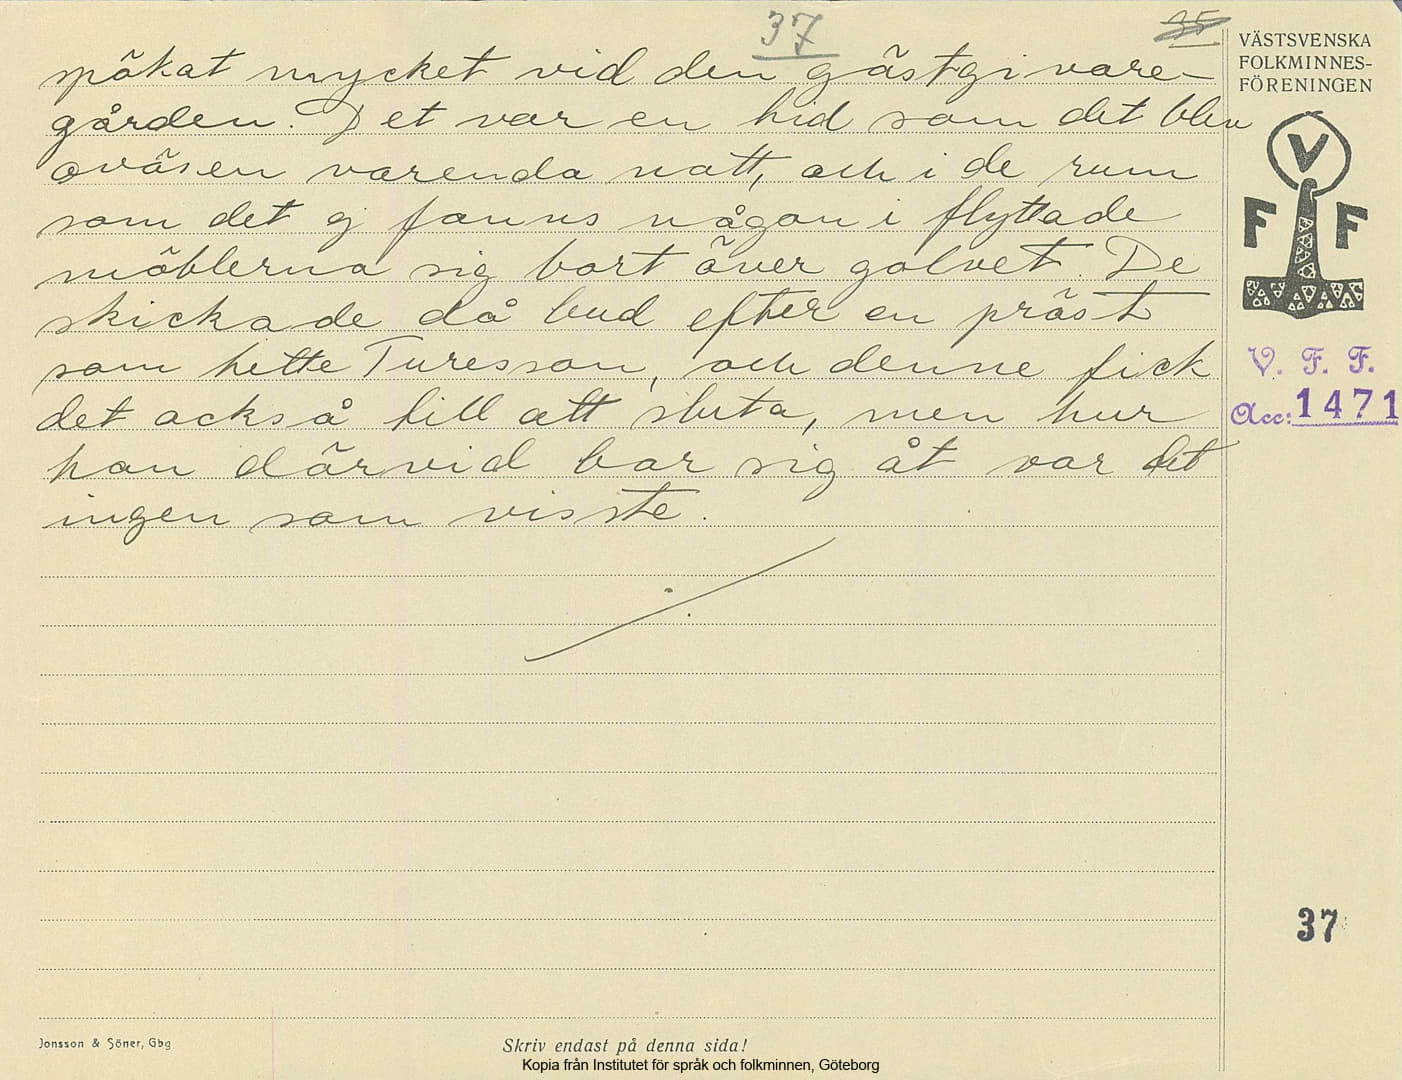 37
35
spökat mycket vid den gästgivare-
gården. Det var en tid som det blev
oväsen varenda natt, och i de rum
som det ej fanns någon i flyttade
möblerna sig bort över golvet. De
skickade då bud efter en präst
som hette Turesson, och denne fick
det också till att sluta, men hur
han därvid bar sig åt var det
ingen som visste.
VÄSTSVENSKA
FOLKMINNES-
FÖRENINGEN
V
F F
V. F. F.
Acc: 1471
37
Jonsson & Söner, Gbg
Skriv endast på denna sida!
Kopia från Institutet för språk och folkminnen, Göteborg